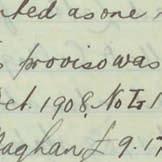 nted as one
s proviso was
Oct. 1908, No
Vaghan, £ 9. 17